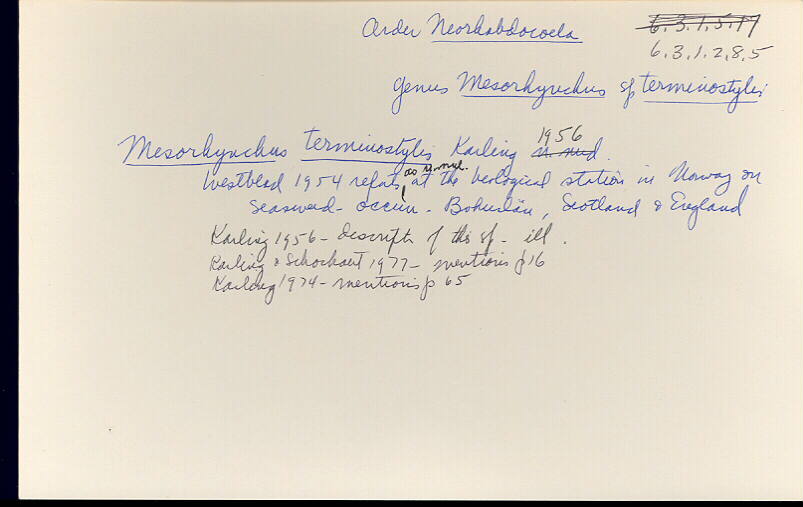 Order Neorhabdocoela
6.3.1.5.17
6.3.1.2.8.5
genus Mesorhynchus sp terminostylis
Mesorhynchus terminostylis Karling 1956 n. nud.
Westblad 1954 refers as n. nud. at the biological station in Norway on
seaweed - occurr - Bohuslän, Scotland & England
Karling 1956 - descript of this sp - ill.
Karling & Schockaert 1977 - mentions p 16
Karling 1974 - mentions p 65